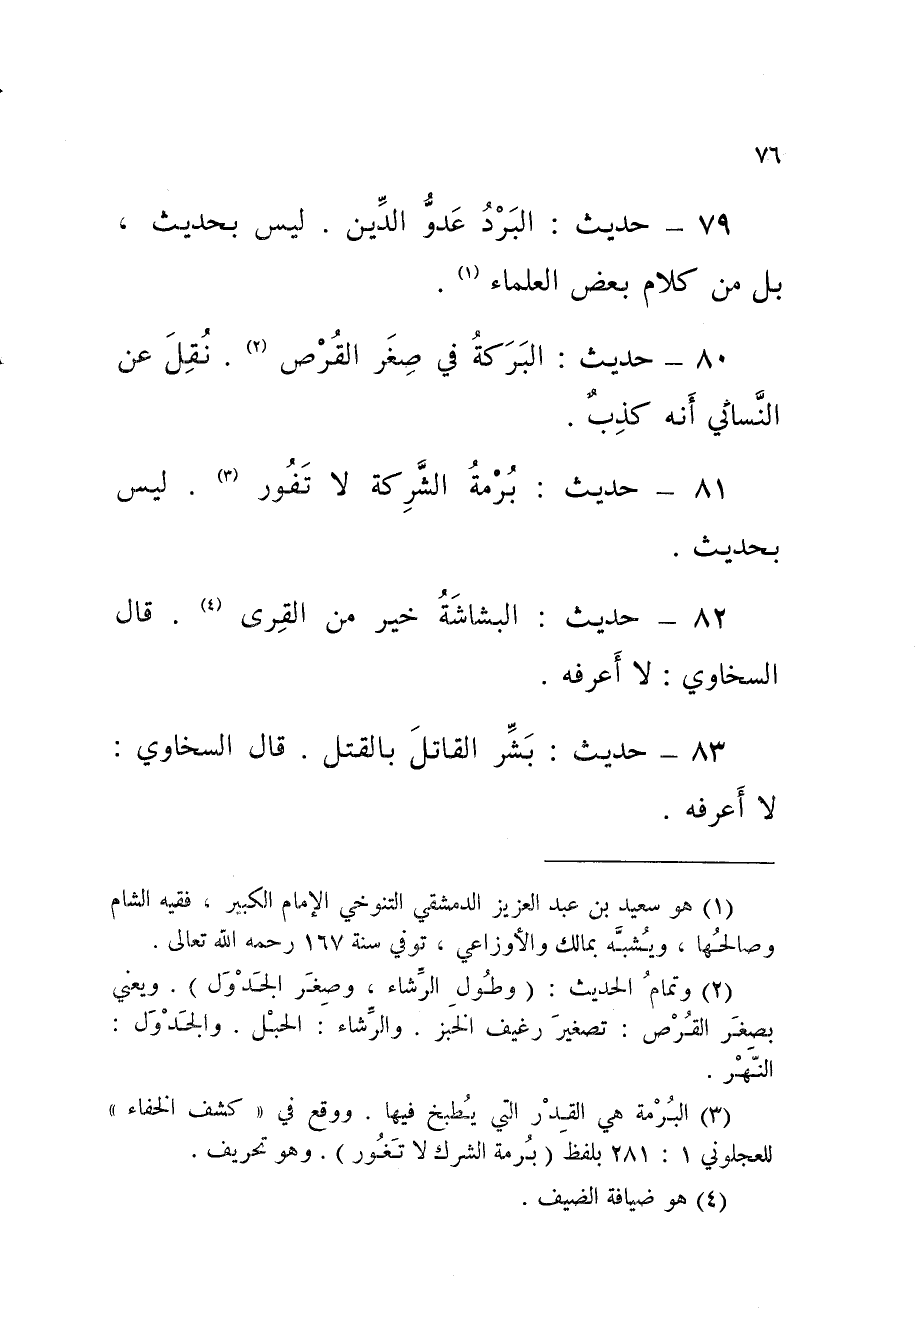 ٧٦
٧٩ – حديث : البَرْدُ عَدوُّ الدِّين . ليس بحديث ،
بل من كلام بعض العلماء (١) .
٨٠ – حديث : البَرَكةُ في صِغَر القُرْص (٢) . نُقِلَ عن
النَّسائي أَنه كذِبٌ .
٨١ – حديث : بُرْمةُ الشَّرِكة لا تَفُور (٣) . ليس
بحديث .
٨٢ – حديث : البشاشَةُ خير من القِرى (٤) . قال
السخاوي : لا أَعرفه .
٨٣ – حديث : بَشِّر القاتلَ بالقتل . قال السخاوي :
لا أَعرفه .
(١) هو سعيد بن عبد العزيز الدمشقي التنوخي الإمام الكبير ، فقيه الشام
وصالحُها ، ويُشبَّه بمالك والأوزاعي ، توفي سنة ١٦٧ رحمه الله تعالى .
(٢) وتمامُ الحديث : ( وطُول الرِّشاء ، وصِغَر الجَدْوَل ) . ويعني
بصِغَر القُرْص : تصغيرَ رغيف الخبز . والرِّشاء : الحبْل . والجَدْوَل :
النَّهْر .
(٣) البُرْمة هي القِدْر التي يُطبخ فيها . ووقع في « كشف الخفاء »
للعجلوني ١ : ٢٨١ بلفظ ( بُرمة الشرك لا تَغُور ) . وهو تحريف .
(٤) هو ضيافة الضيف .